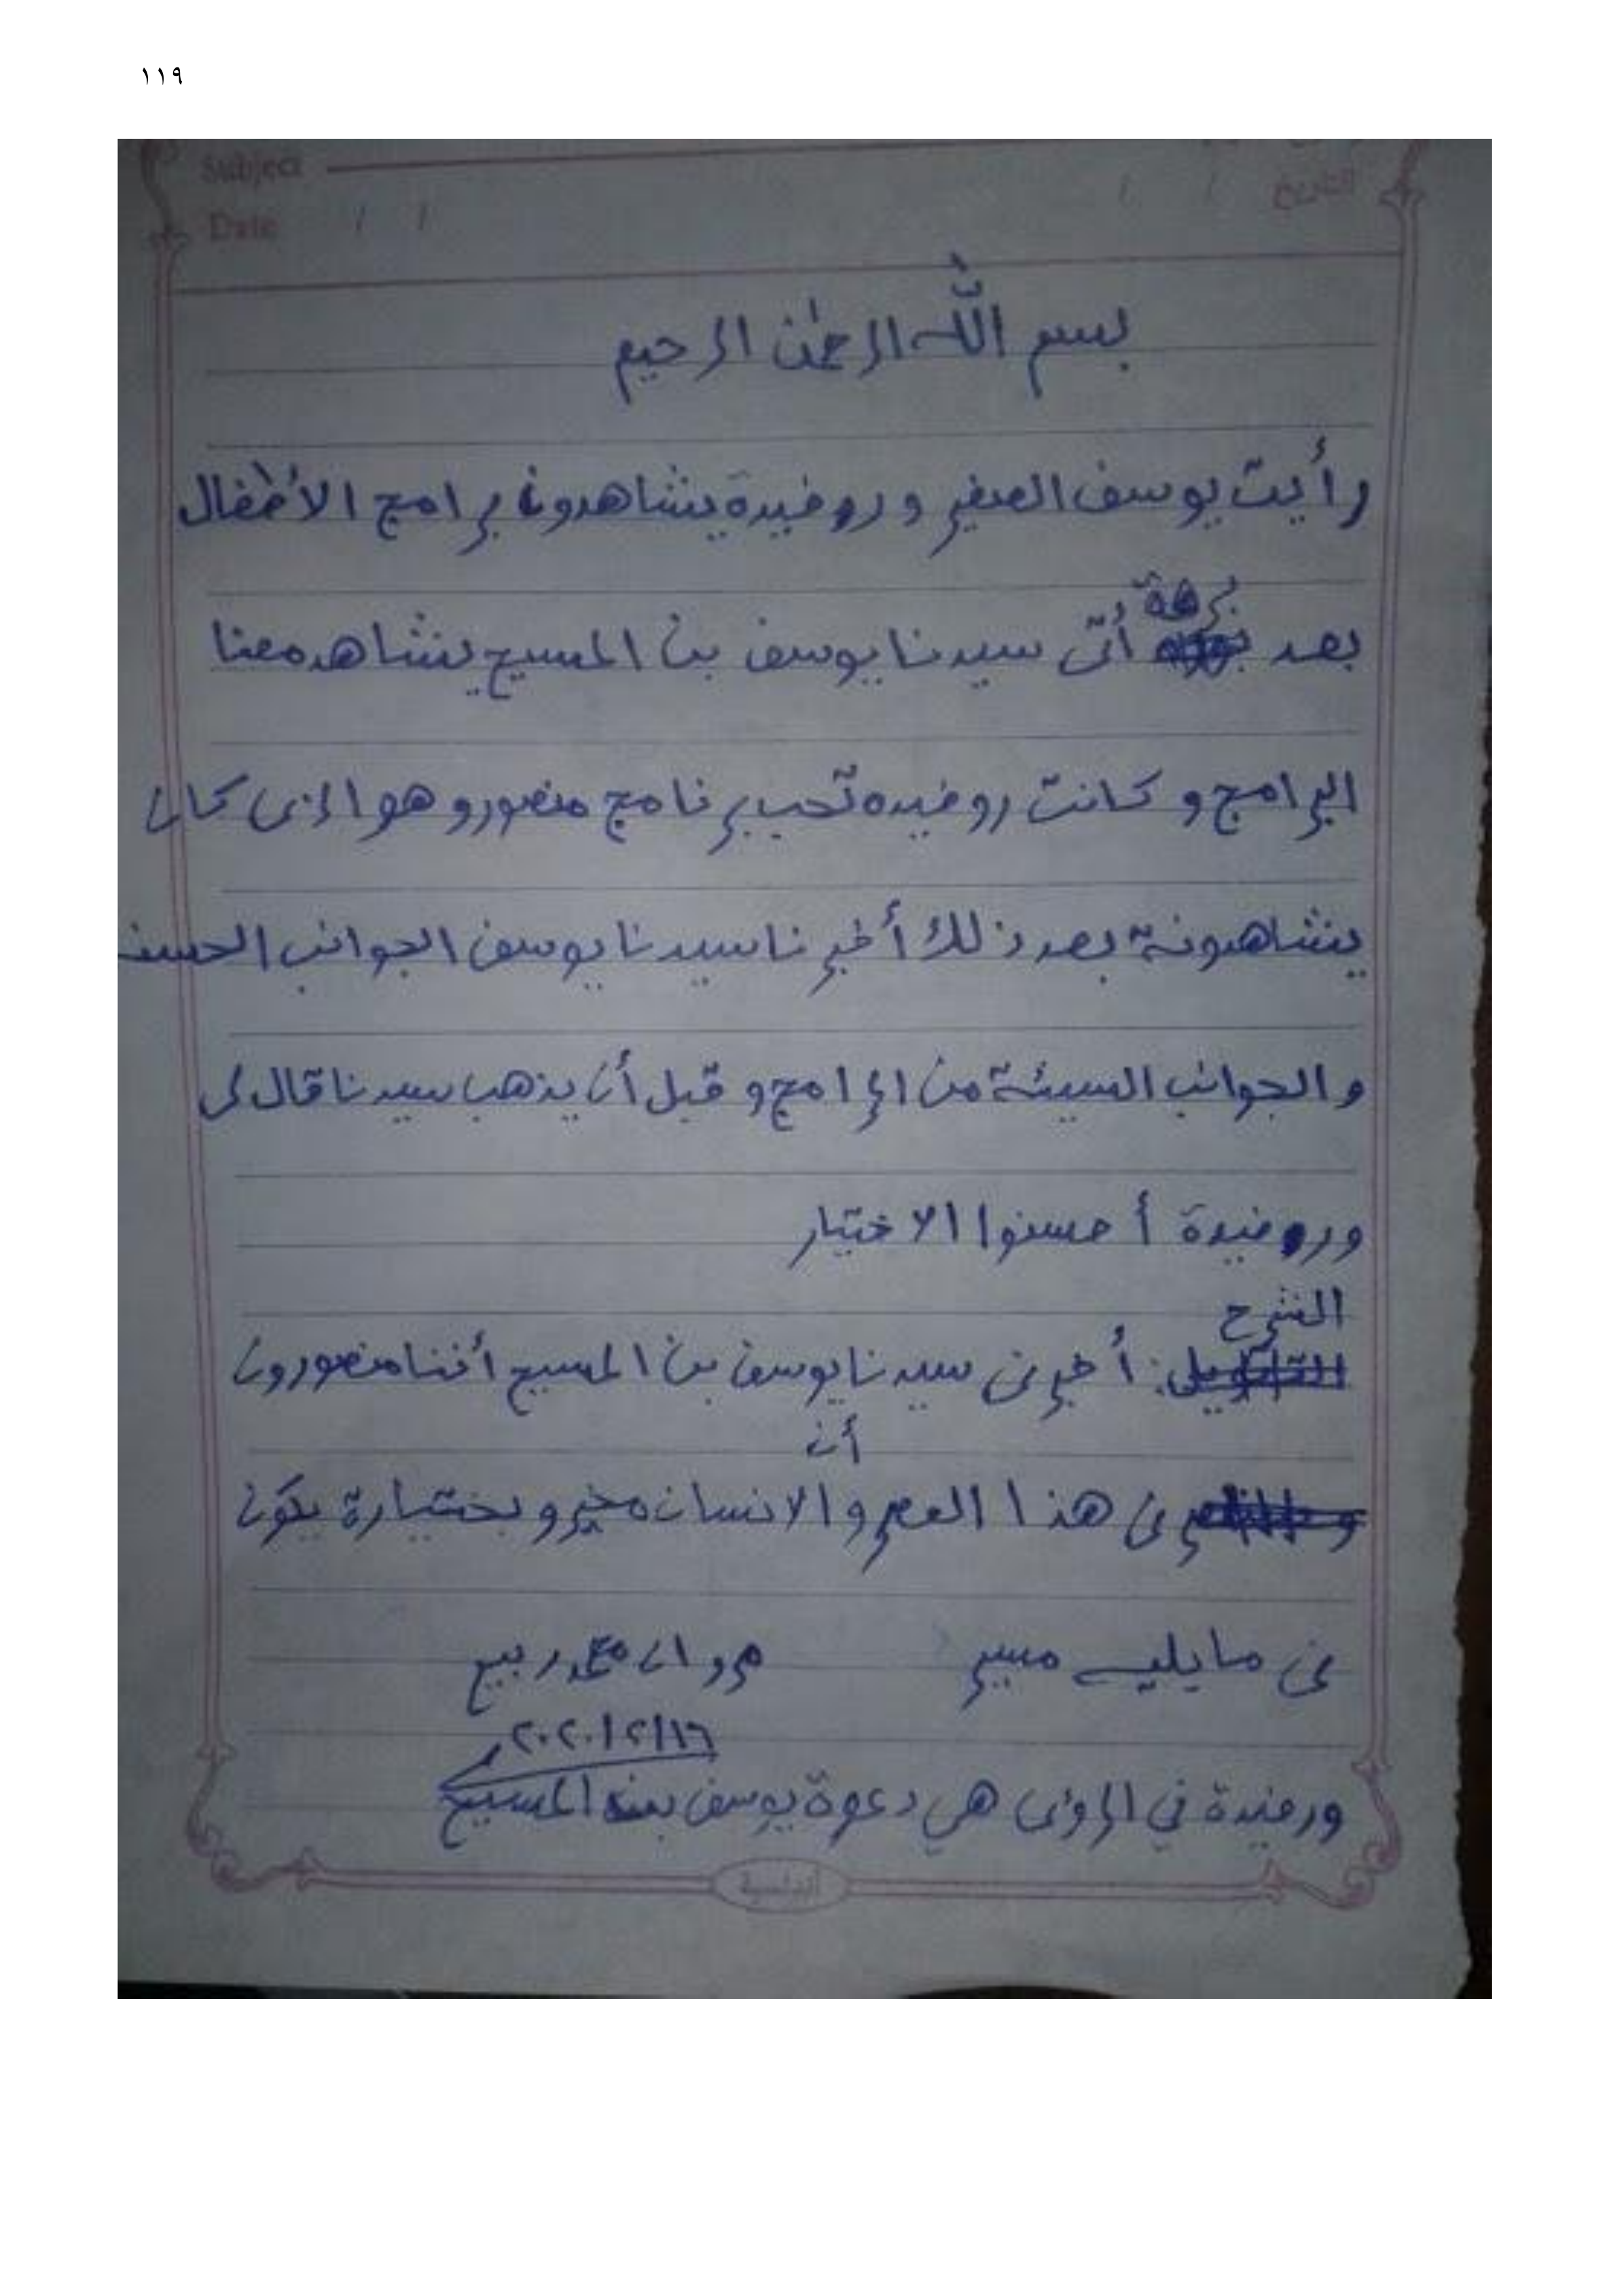 ١١٩
Subject
التاريخ / /
Date / /
بسم الله الرحمن الرحيم
رأيت يوسف الصغير و روفيدة يشاهدون برامج الأطفال
برهة
بعد أتى سيدنا يوسف بن المسيح يشاهد معنا
البرامج و كانت روفيده تحب برنامج منصور و هو الذى كان
يشاهدونة بعد ذلك أخبرنا سيدنا يوسف الجوانب الحسنـ
و الجوانب السيئة من البرامج و قبل أن يذهب سيدنا قال لى
وروفيدة أحسنوا الاختيار
الشرح
التأويل: أخبرنى سيدنا يوسف بن المسيح أننا منصورون
أن
فى هذا العصر و الانسان مخير و بختيارة يكون
فى ما يليه مسير مروان محمد ربيع
٢٠٢٠/٢/١٦
ورفيدة في الرؤى هي دعوة يوسف بن المسيح
أندلسية